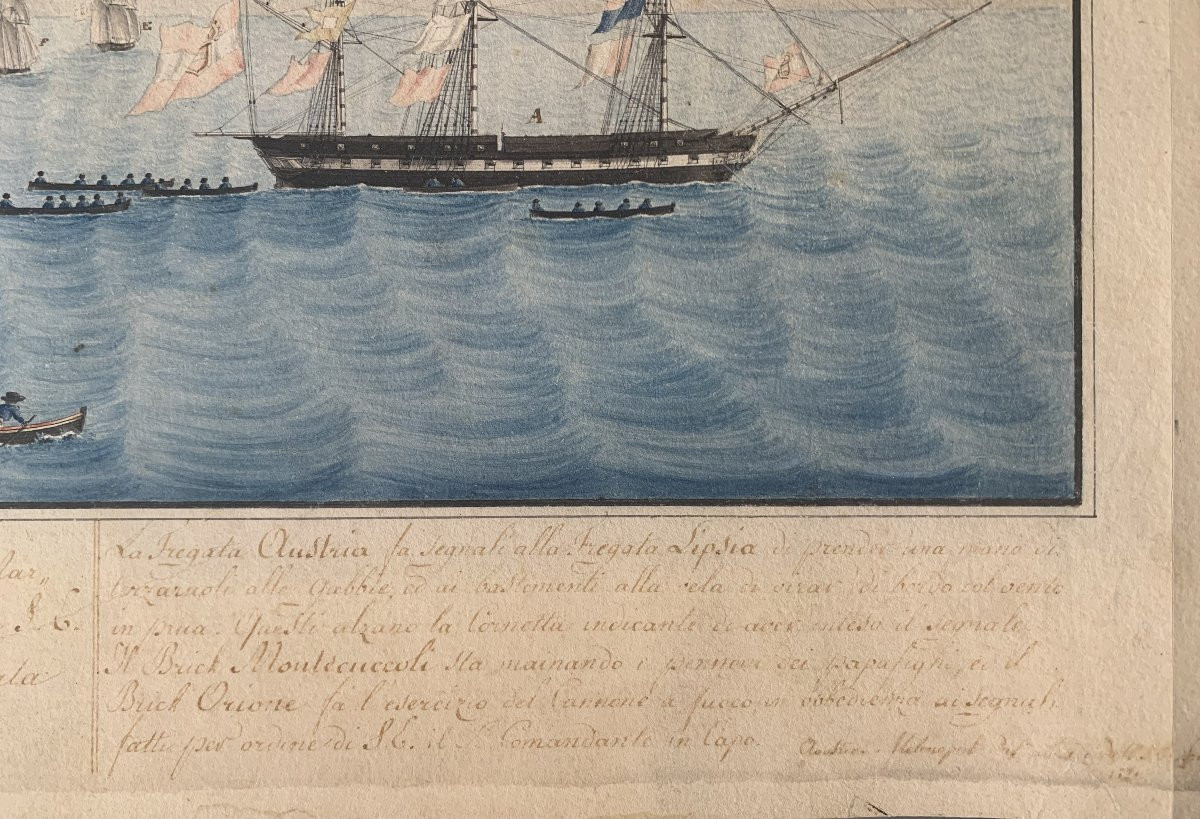 F
E
A
La Fregata Austria fa segnali alla Fregata Lipsia di prender una mano di
terzaruoli alle Gabbie, ed ai bastementi alla vela di virar di bordo col vento
in prua. Questi alzano la Cornetta indicante di aver inteso il segnale.
Il Brick Montecuccoli sta mainando i pennoni dei papafighi, ed il
Brick Orione fa l'esercizio del Cannone a fuoco in obbedienza ai segnali
fatti per ordine di S.E. il Sr. Comandante in Capo.
S.E.